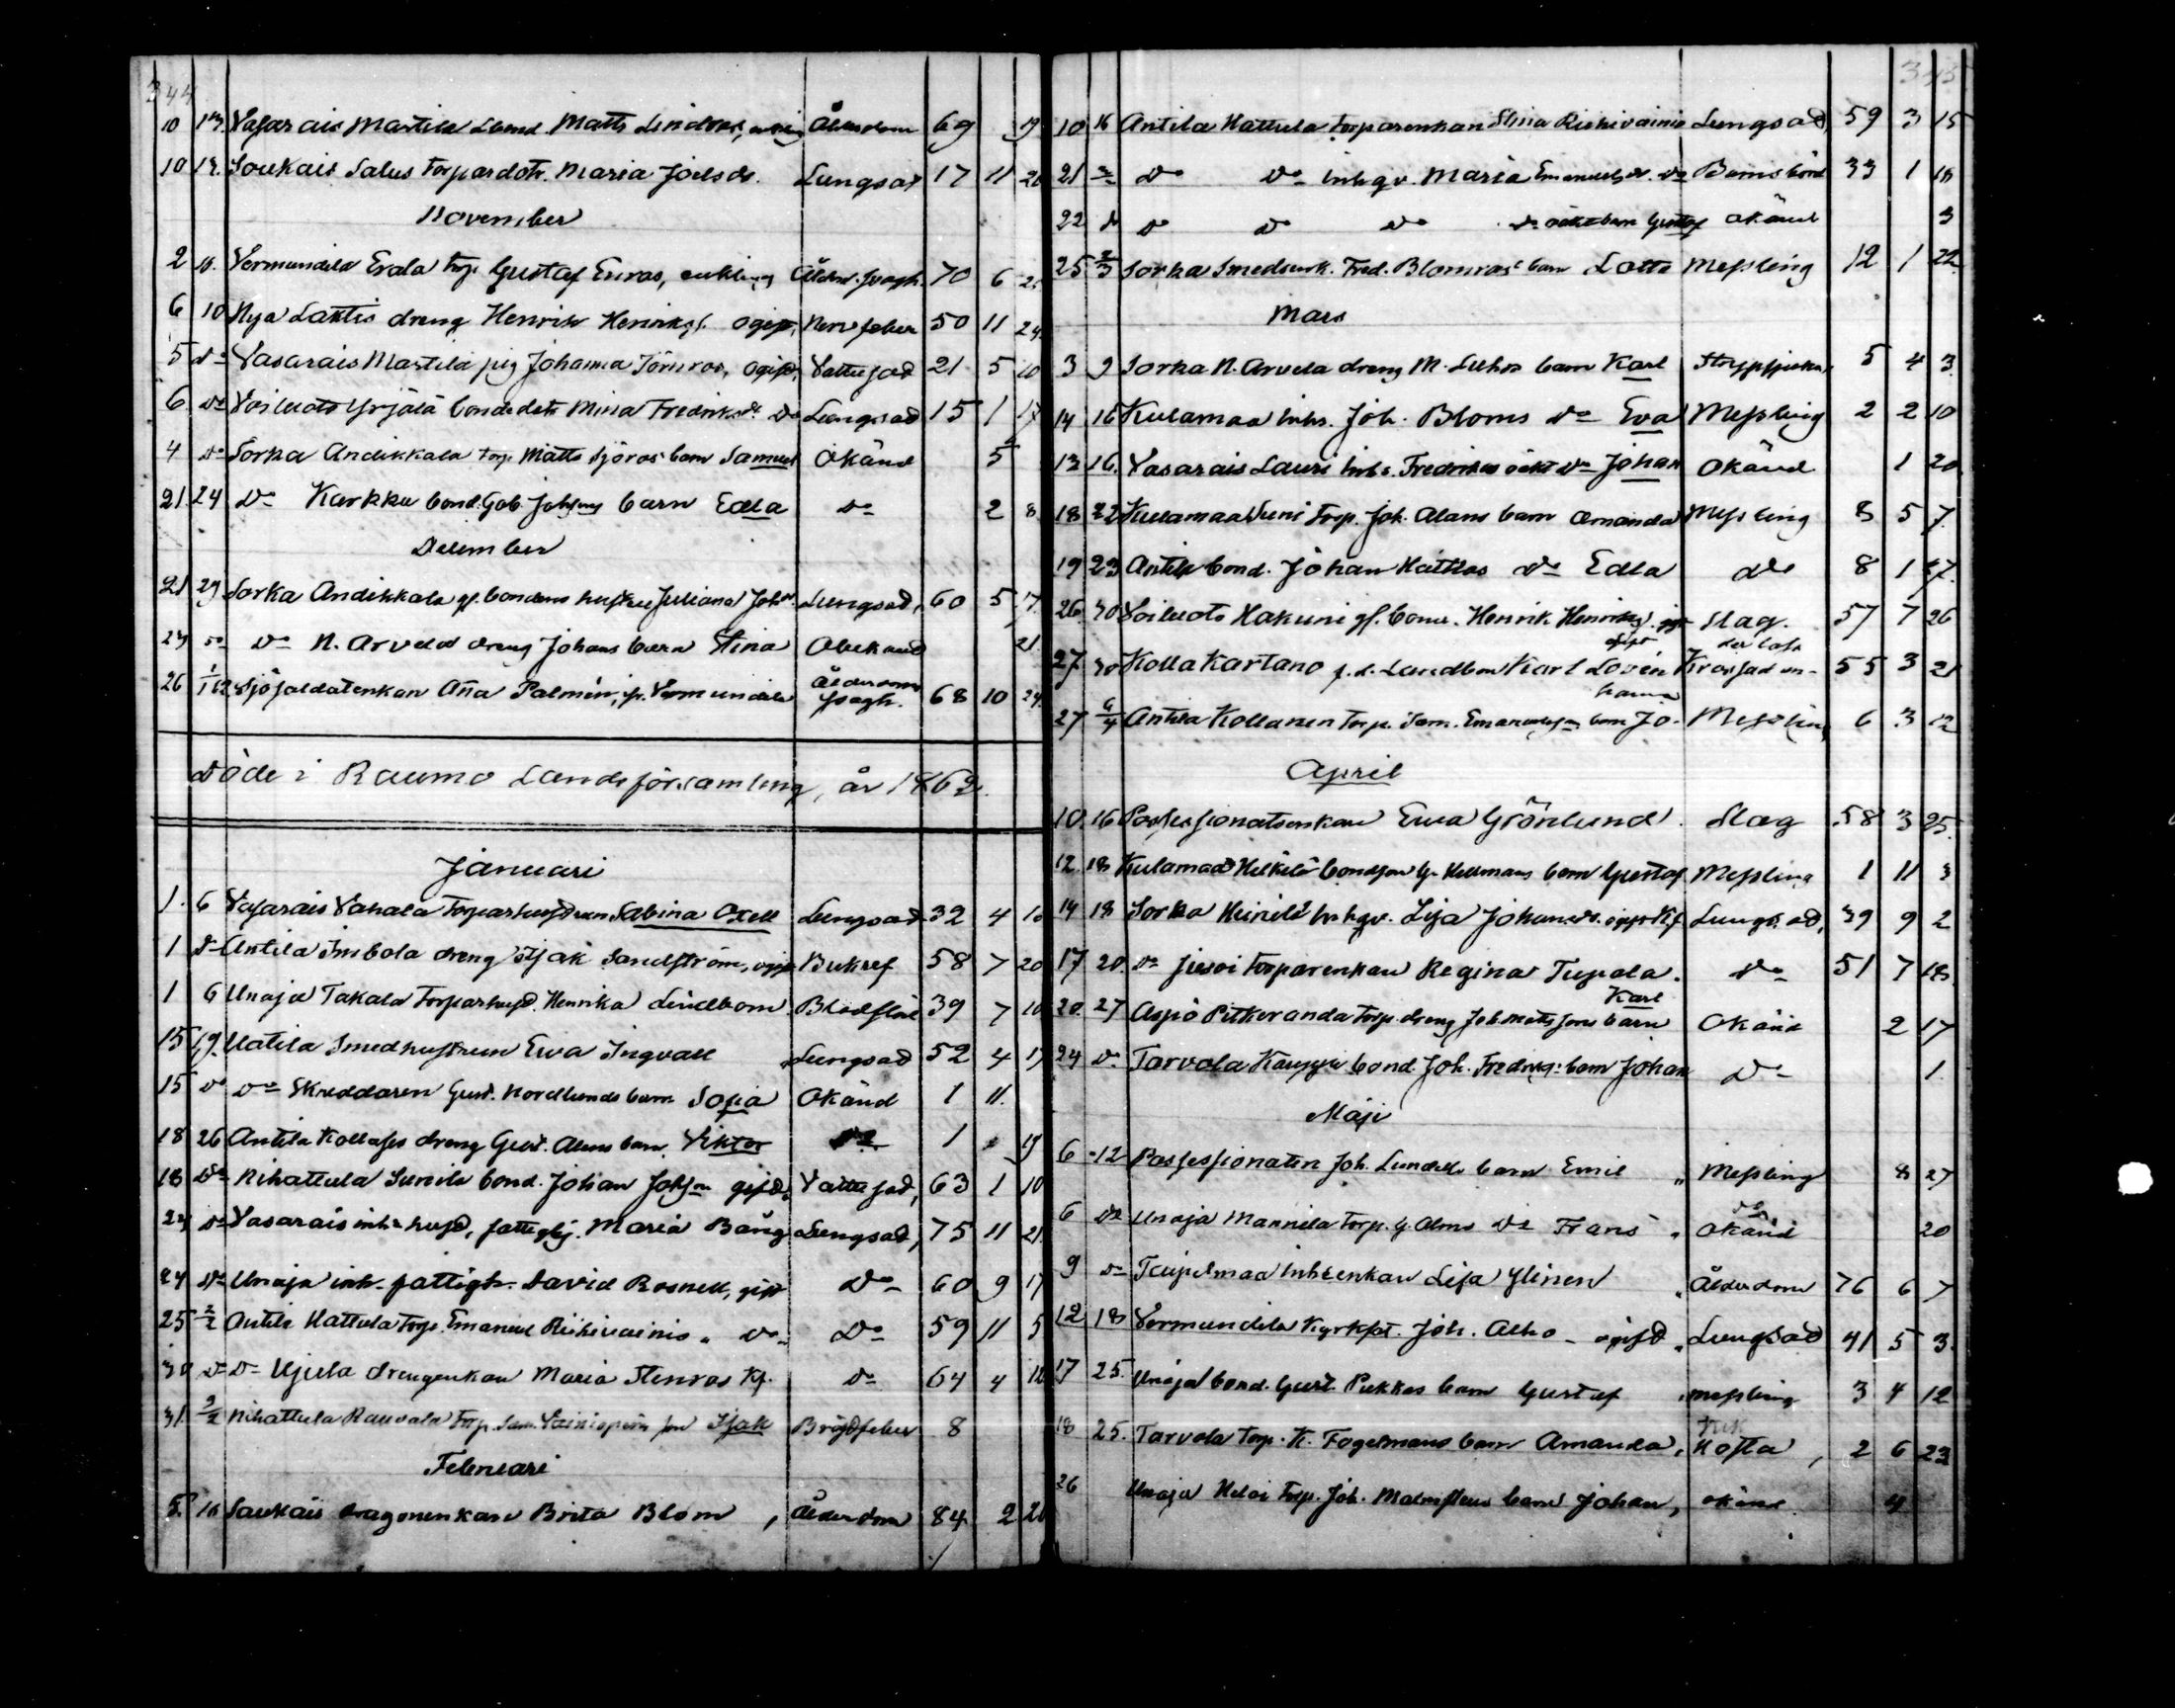 344
10 13. Vasarais Martila Lbond. Matts Lindros, enkling Ålderdom 69 19
10 13. Soukais Salus torpardotr. Maria Joelsdr. Lungsot 17 11 26
November
2 10. Vermundila Erala torp. Gustaf Enros, enkling Ålderd. svagh. 70 6 25
6 10 Nya Lattis dreng Henrik Henrikss. ogift, Nervfeber 50 11 24
5 do Vasarais Martila pig Johanna Törnros, ogift, Vattusot 21 5 10
6 do Voiluoto Yrjälä bondedotr Mina Fredriksdr. do Lungsot 15 1 17
4 do Sorka Andikkala torp. Matts Sjöros barn Samuel Okänd 5
21 24 do Karkku bond. Gab. Johssons barn Edla do 2 8
December
21 29 Sorka Andikkala gf. bondens hustru Juliana Johdr. Lungsot, 60 5 17
23 do do N. Arvela dreng Johans barn Stina Obekand 21
26 1/1 62 Sjösoldatenkan Anna Palmén, fr. Vermundila Ålderdoms svagh. 68 10 24
Döde i Raumo Landsförsamling, år 1862.
Januari
1. 6 Vasarais Vahala Torparhustrun Sabina Oxell Lungsot 32 4 10
1 do Antila Imbola dreng Isjak Sandström, ogift Bukref 58 7 20
1 6 Unaja Takala Torparhust. Henrika Lindbom Blodflöd 39 7 10
15 19. Uotila Smedhustrun Ewa Ingvall Lungsot 52 4 17
15 do do Skreddaren Gust. Nordlunds barn Sofia Okänd 1 11.
18 26 Antila Kollases dreng Gust. Alms barn Viktor do 1 19
18 do Nihattula Sunila bond. Johan Johsson gift, Vattusot, 63 1 10
23 do Vasarais inh. hust, fattighj. Maria Bäng Lungsot, 75 11 21
24 do Unaja inh. fattigh. David Rosnell, gift do 60 9 17
25 2/2 Antila Hattula Torp. Emanuel Riskivainio " do " do 59 11 5
30 do do Ujula drengenkan Maria Stenros Kf. do 64 4 18
31. 2/2 Nihattula Rauvola Torp. Sam. Vainiopään son Isjak Bröstfeber 8
Februari
5. 10 Saukais dragonenkan Brita Blom, Ålderdom 84 2 21
345
10 16 Antila Hattula torparenkan Stina Riskivainio Lungsot, 59 3 15
21 2/3 do do inhqv. Maria Emanuelsdr. do Barnsbörd 33 1 18
22 do do do do do oäkta barn Gustaf Okänd 3
25 2/3 Sorka Smedsenk. Fred. Blomros' barn Lotta Messling 12 1 22
Mars
3 9 Sorka N. Arvela dreng M. Luhos barn Karl Strypsjuka 5 4 3
14 16 Kulamaa Inhs. Joh. Bloms do Eva Messling 2 2 10
13 16. Vasarais Lauri Inhs. Fredrikas oäkt do Johan Okänd 1 20
18 22 Kulamaa Juni Torp. Joh. Alans barn Amanda Messling 8 5 7.
19 23 Antila bond. Johan Hattlas do Edla do 8 1 27.
26 30 Voiluoto Hakuni gf. bond. Henrik Henrikss. gift Slag. 57 7 26
27 30 Kolla Kartano f.d. Landbon Karl Lovén gift 55 3 21
27 6/4 Antila Kollanen Torp. Sam. Emanuelssons barn Johanna Messling 6 3 12
April
10. 16 Possessionatsenkan Ewa Grönlund. Slag 58 3 25.
12. 18 Kulamaa Heikilä bondson G. Hellmans barn Gustaf Messling 1 11 3
14 18 Sorka Heinilä Inhqv. Lisa Johansdr. ogift Kf Lungsot, 39 9 2
17 20. do Juvoi torparenkan Regina Tupala. do 51 7 18
20. 27 Aspö Pitkeranda torp. dreng Joh. Mattssons barn Karl Okänd 2 17
24 do Tarvola Kauppi bond. Joh. Fredriks: barn Johan do 1.
Maji
6 12 Possessionaten Joh. Lundells barn Emil " Messling 8 27
6 do Unaja Mannila Torp. G. Alms do Frans " Okänd 20
9 do Teupelmaa Inhsenkan Lisa Ylinen " Ålderdom 76 6 7
12 18 Vermundila Kyrkfat. Joh. Alho - ogift " Lungsot 41 5 3.
17 25. Unaja bond. Gust. Pukkas barn Gustaf " Messling 3 4 12
18 25. Tarvola Torp. K. Fogelmans barn Amanda, Kik Hosta, 2 6 23
26 Unaja Heloi Torp. Joh. Malmstens barn Johan, okänd. 4